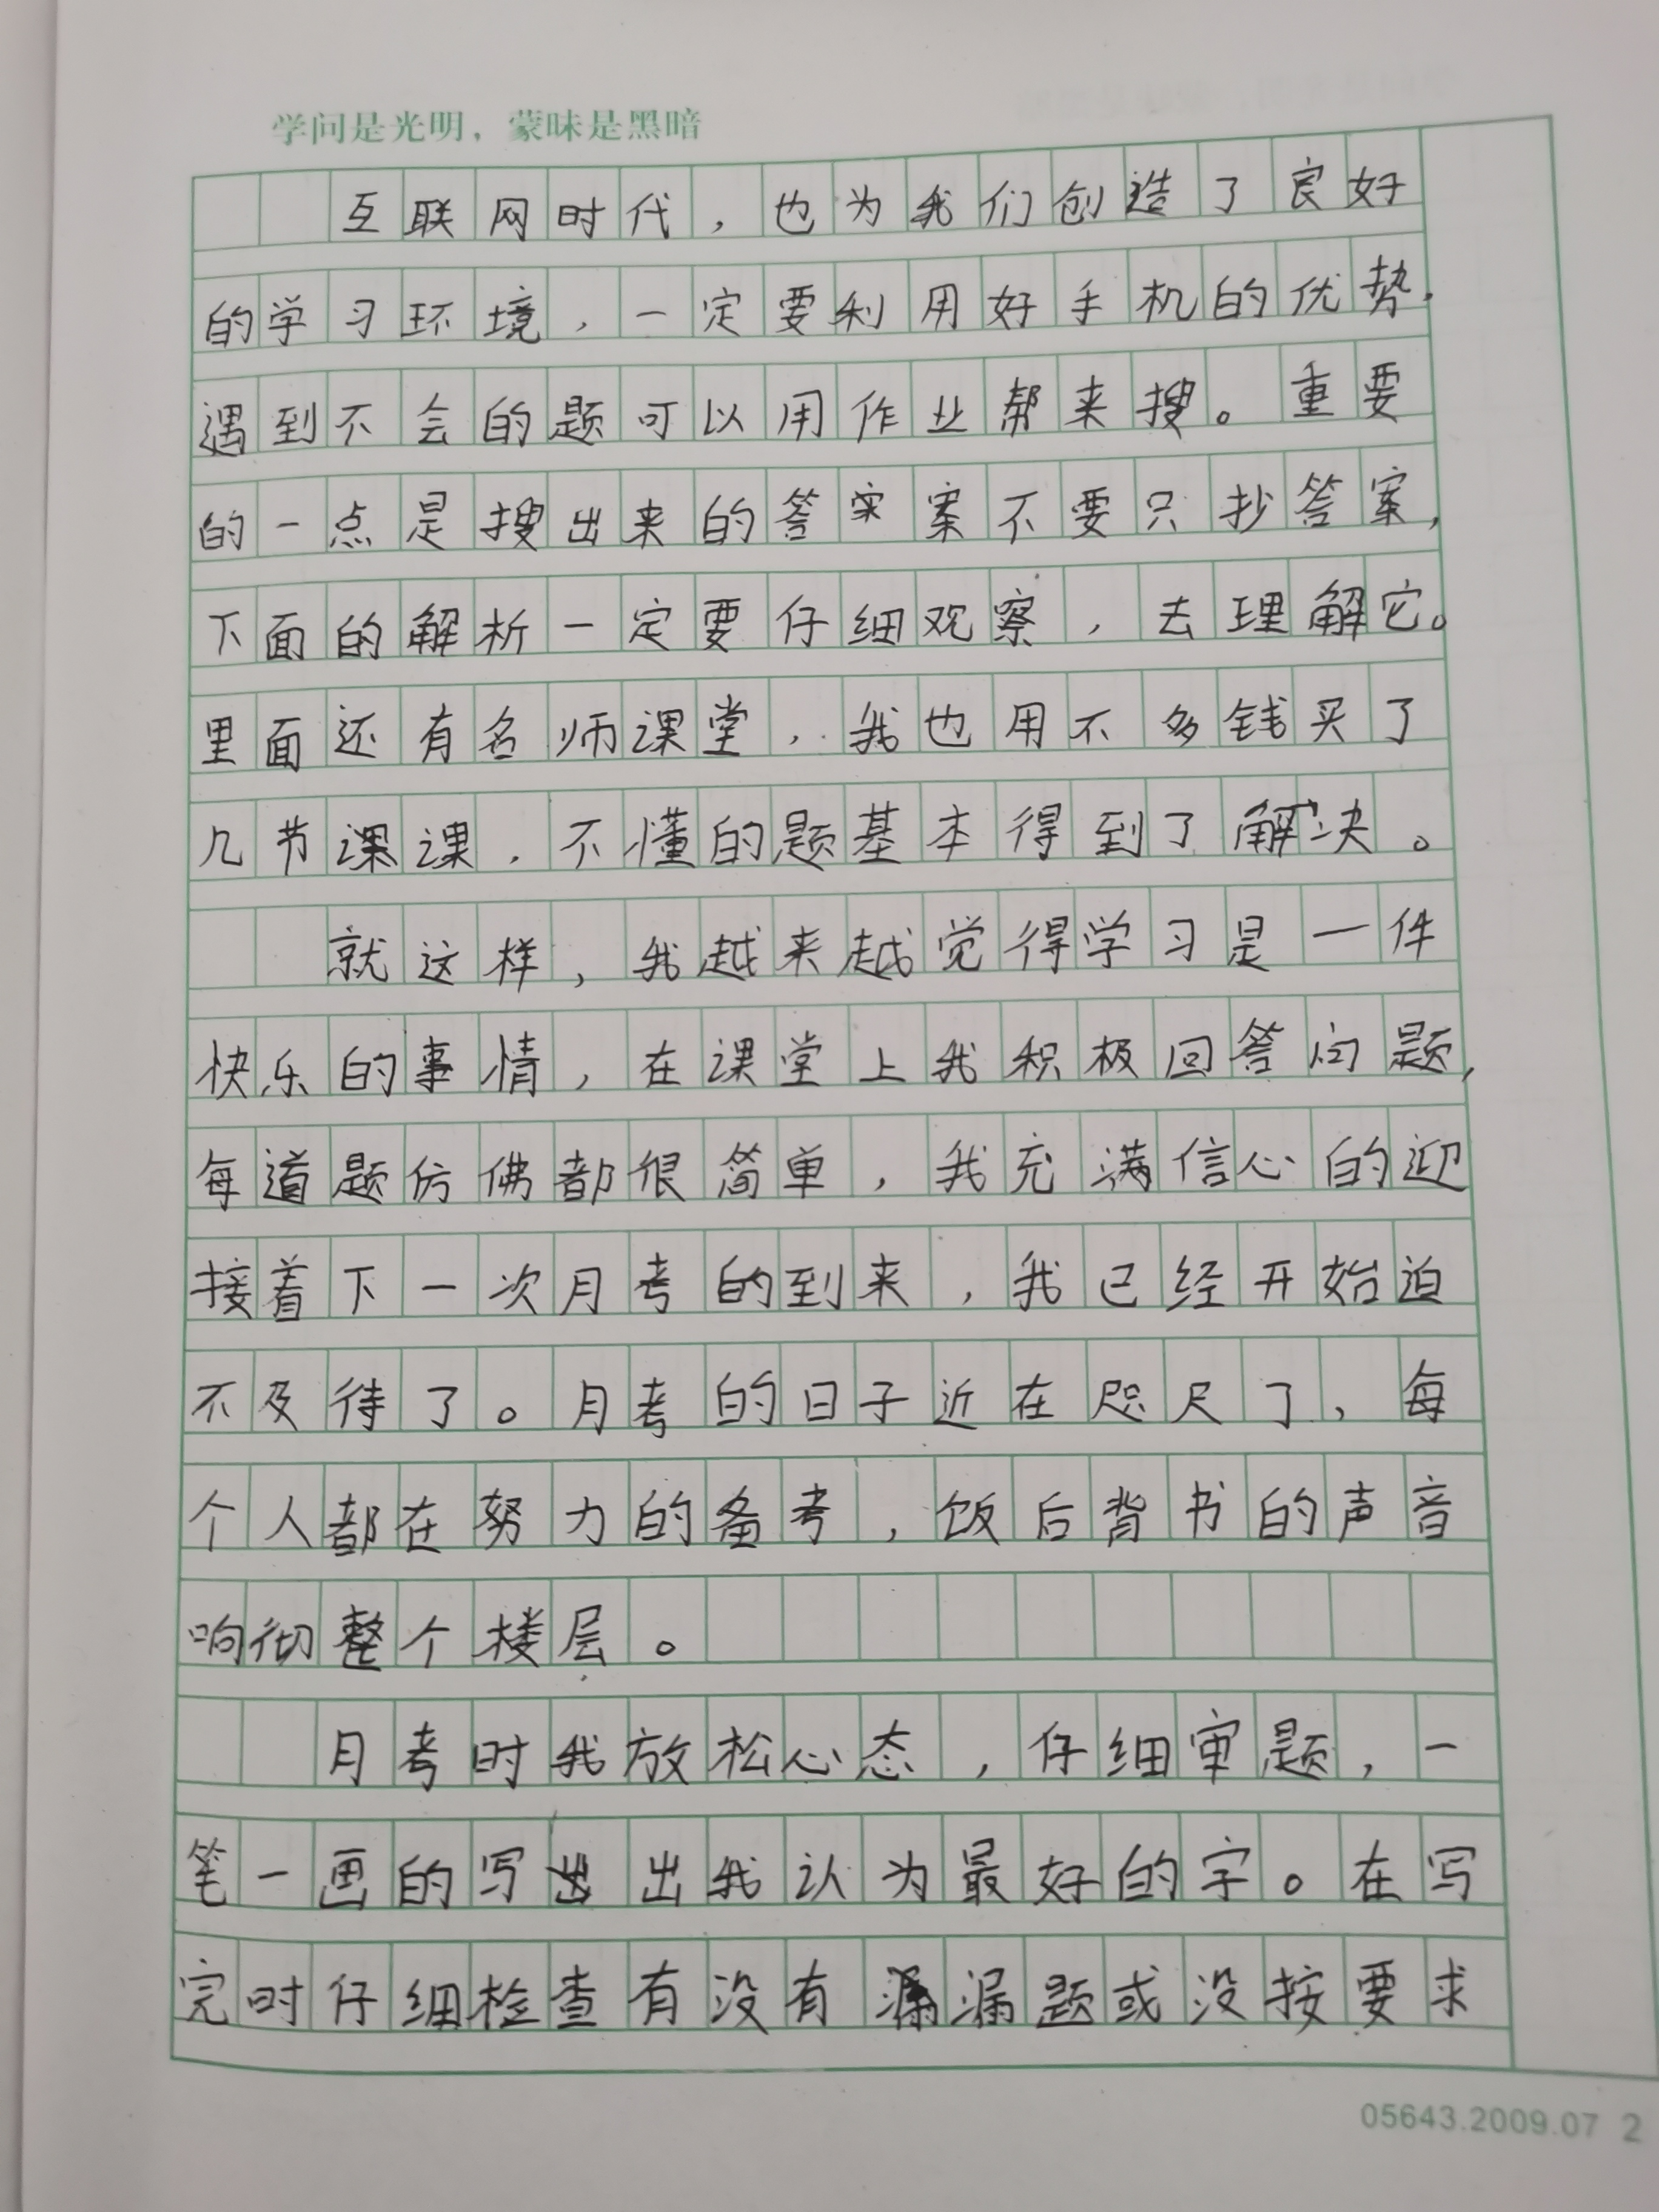 学问是光明，蒙昧是黑暗
互联网时代，也为我们创造了良好
的学习环境，一定要利用好手机的优势，
遇到不会的题可以用作业帮来搜。重要
的一点是搜出来的答案不要只抄答案，
下面的解析一定要仔细观察，去理解它。
里面还有名师课堂，我也用不多钱买了
几节课课，不懂的题基本得到了解决。
就这样，我越来越觉得学习是一件
快乐的事情，在课堂上我积极回答问题，
每道题仿佛都很简单，我充满信心的迎
接着下一次月考的到来，我已经开始迫
不及待了。月考的日子近在咫尺了，每
个人都在努力的备考，饭后背书的声音
响彻整个楼层。
月考时我放松心态，仔细审题，一
笔一画的写出出我认为最好的字。在写
完时仔细检查有没有漏题或没按要求
05643.2009.07 2